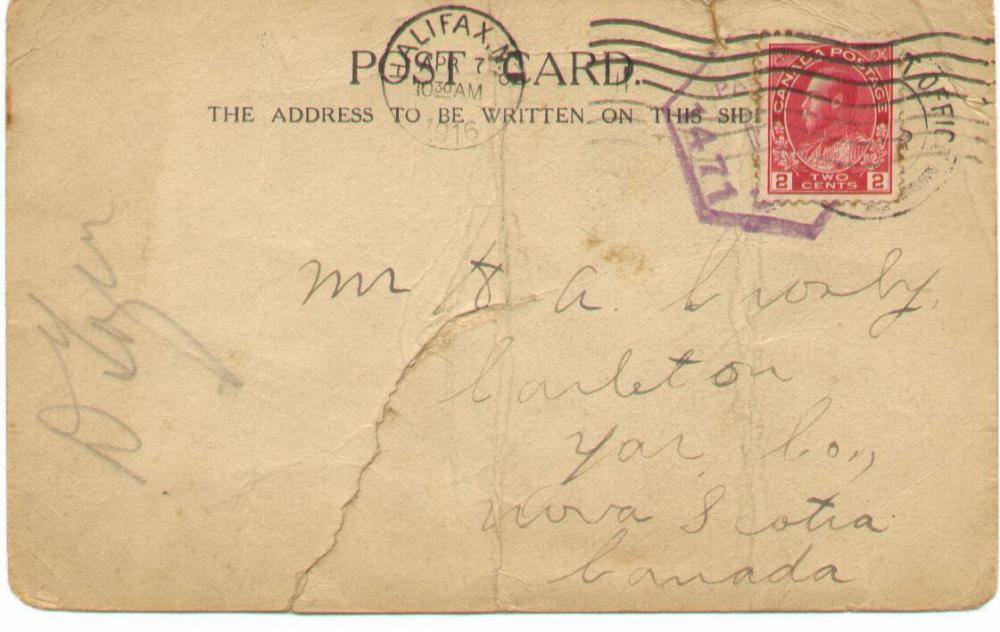 HALIFAX, N.
APR 7
10 30 AM
1916
POST CARD.
THE ADDRESS TO BE WRITTEN ON THIS SID
CANADA POSTAGE
2 TWO CENTS 2
PA
1471
T OFFIC
Mr A. Crosby,
Carleton
Yar, Co.,
Nova Scotia
Canada